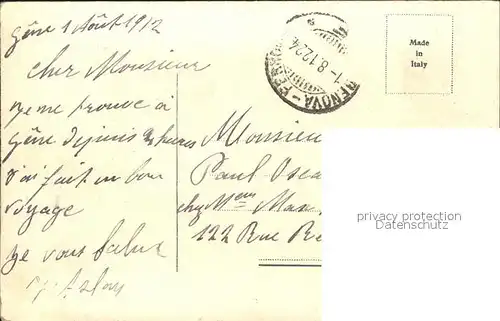 Gêne 1 Août 1912
Cher Monsieur
Je me trouve à
Gêne depuis 2 heures
J'ai fait un bon
voyage
Je vous salue
GENOVA
1-8.1224
Made
in
Italy
Monsieur
Paul Osca
chez Mrs Max
122 Rue Re
privacy protection
Datenschutz